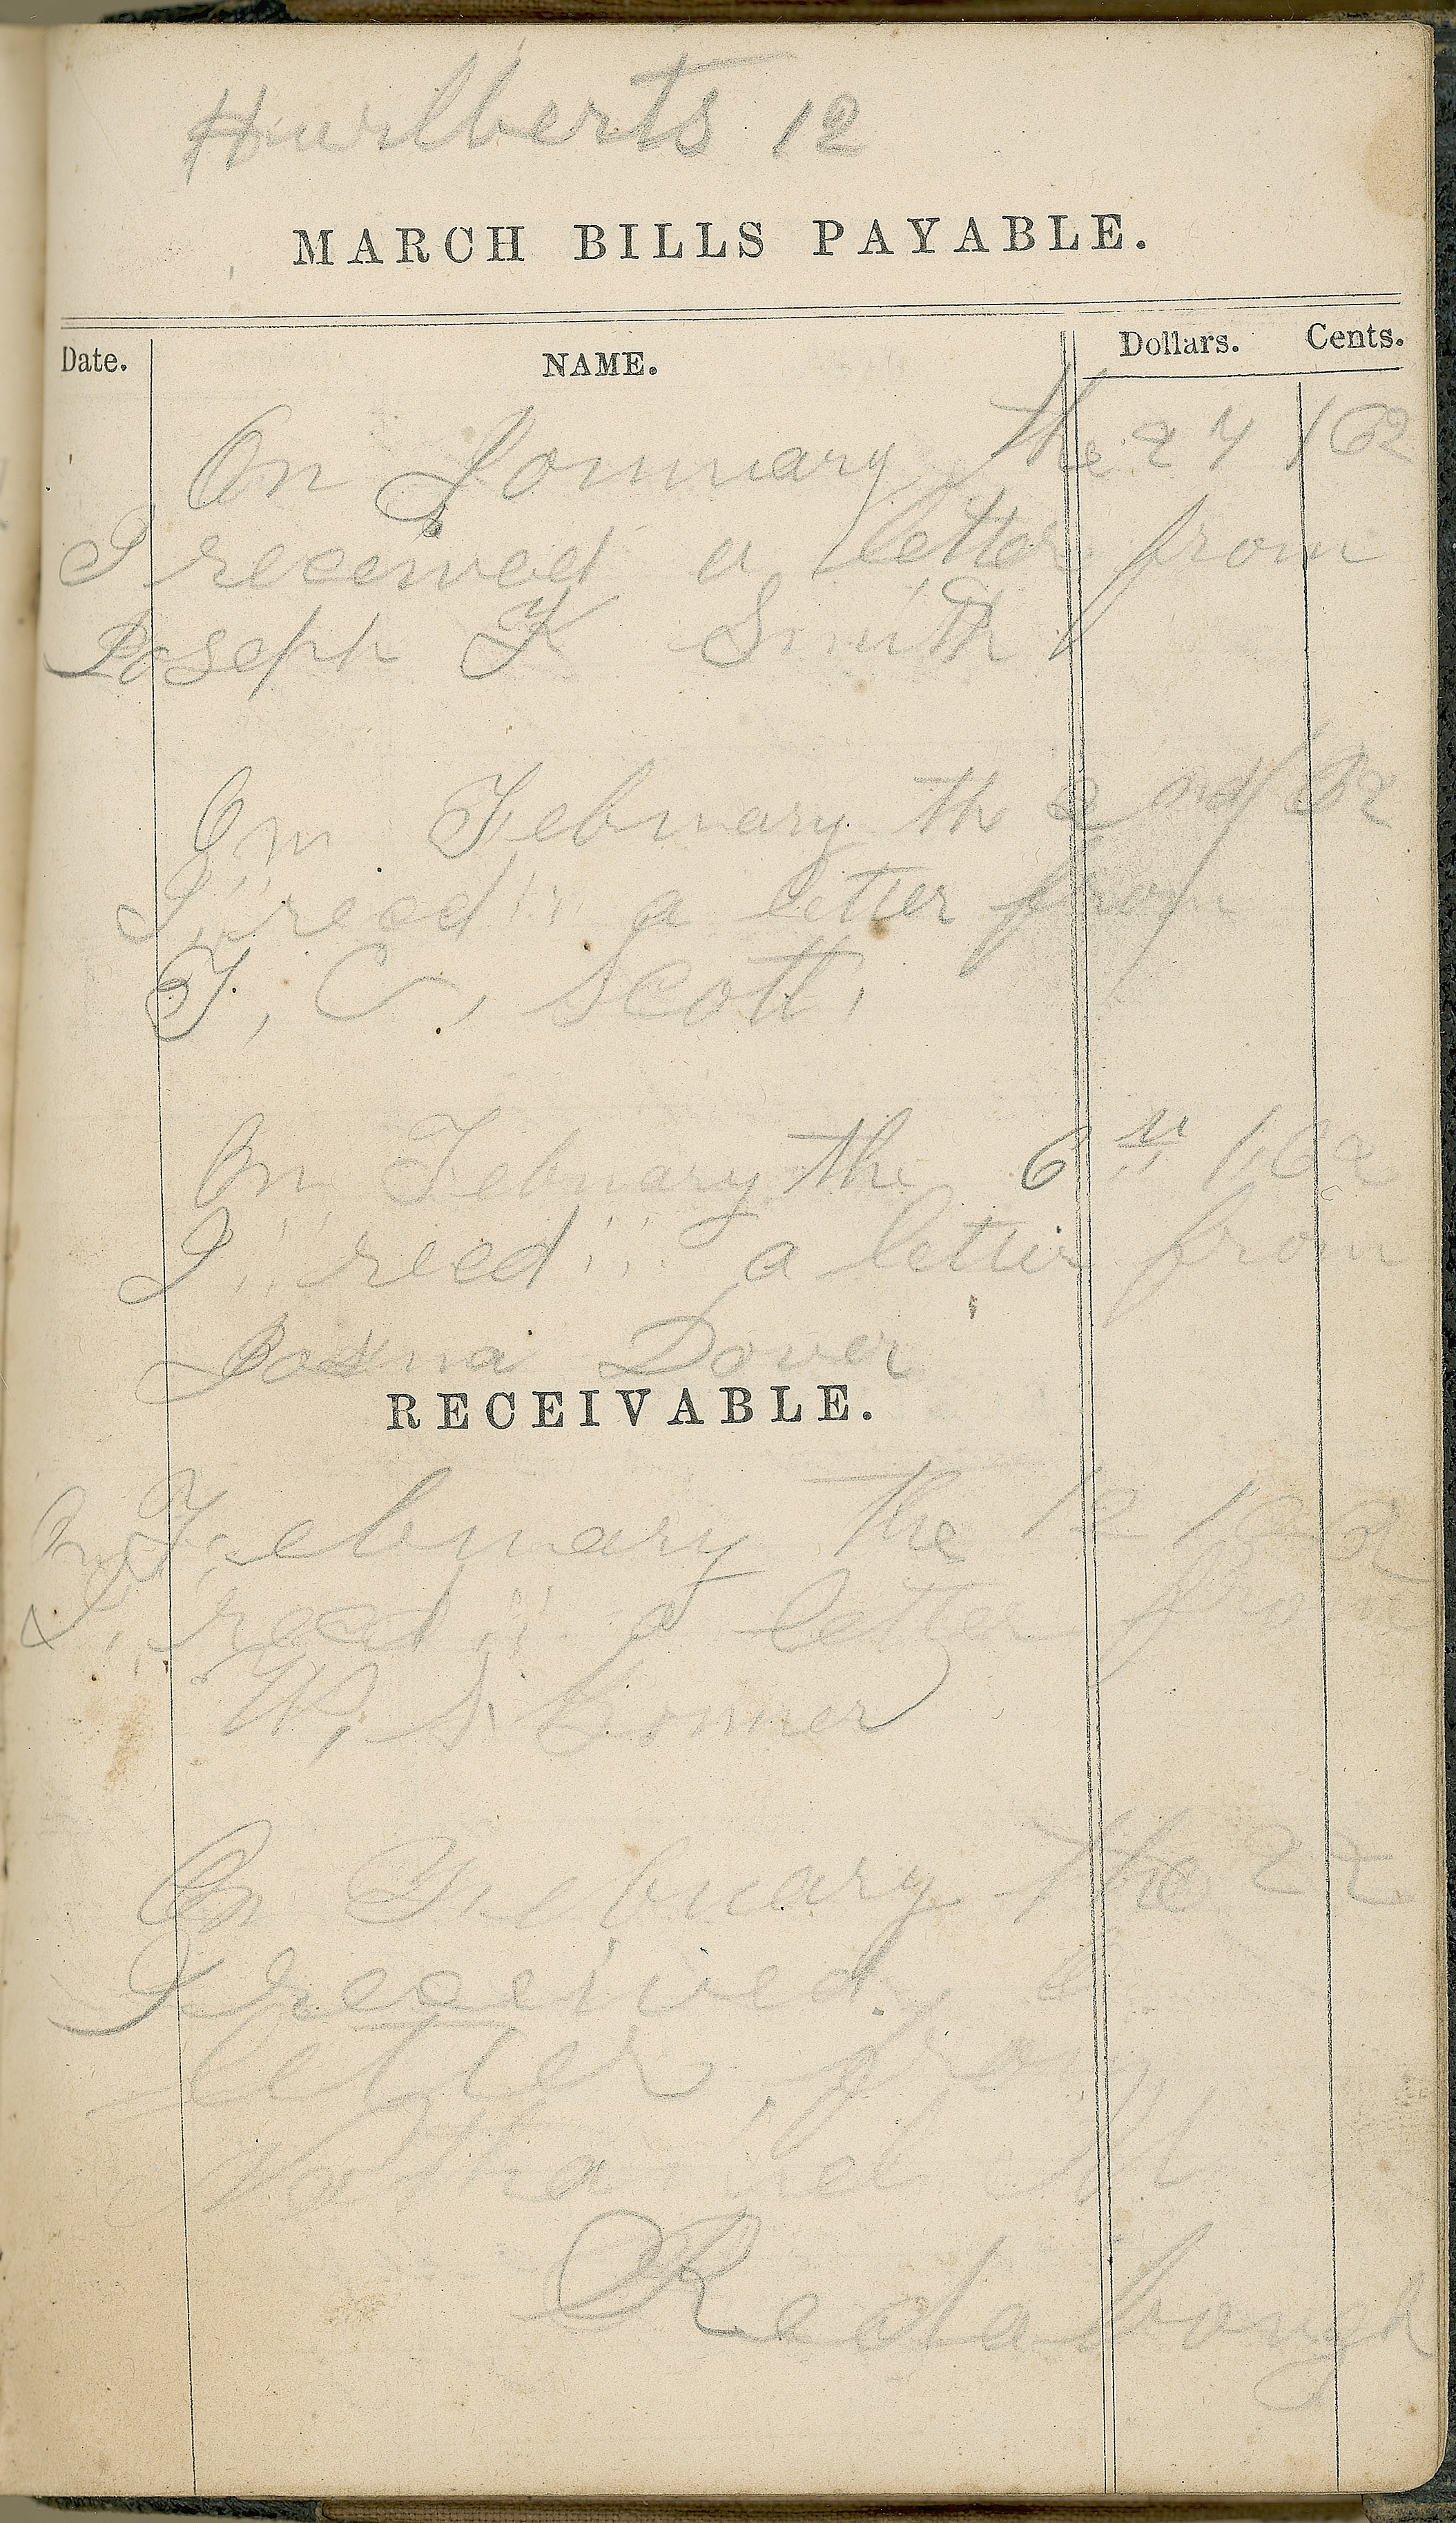 Hurlberts 12
MARCH BILLS PAYABLE.
Date. NAME. Dollars. Cents.
On Jonnuary the 24 / 62
I received a letter from
Joseph K Smith
On Febuary th 2 nd / 62
I recd a letter from
T, C, Scott,
On Febuary the 6 th / 62
I recd a letter from
Dover
RECEIVABLE.
On Febuary the 12 / 62
I recd a letter from
W, S.
On Febuary the 22
I received a
letter from
M
Redabough